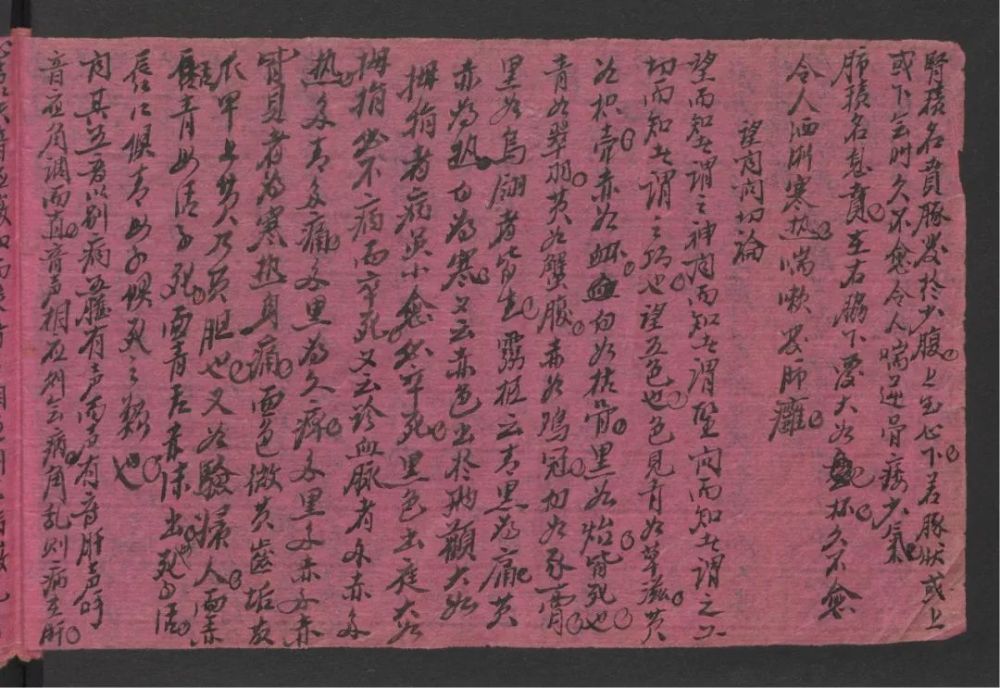 腎積名賁豚发於少腹上至心下若豚狀或上
或下无时久不愈令人喘逆骨痿少氣
肺積名息賁在右脇下覆大如盃杯久不愈
令人洒淅寒热喘嗽发肺癰
望闻问切論
望而知之謂之神闻而知之謂聖问而知之謂之工
切而知之謂之巧也望五色也色見青如草滋黄
如枳壳赤如衃血白如枯骨黑如炲皆死也
青如翠羽黄如蟹腹赤如鸡冠白如豕膏
黑如烏翎者皆生靈枢云青黑為痛黄
赤為热白為寒又云赤色出於两顴大如
拇指者病虽小愈必卒死黑色出庭大如
拇指必不病而卒死又云診血脉者多赤多
热多青多痛多黑為久痹多黑多赤多
皆見者為寒热身痛面色微黄齒垢黄
爪甲上黄乃黄胆也又如驗婦人面赤
舌青母活子死面青舌赤沫出死子活
唇口俱青母子俱死之類也
闻其五音以别病五臟有声而声有音肝声呼
音应角调而直音声相应则无病角乱则病在肝